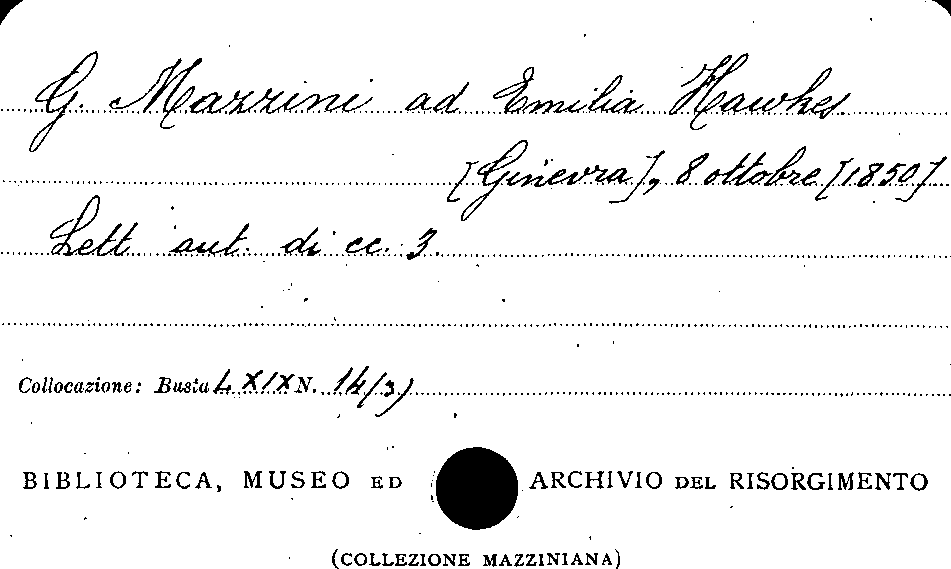 G. Mazzini ad Emilia Hawkes.
[Ginevra], 8 ottobre [1850]
Lett. aut. di cc. 3.
Collocazione: Busta LXIX N. 14/3)
BIBLIOTECA, MUSEO ED ARCHIVIO DEL RISORGIMENTO
(COLLEZIONE MAZZINIANA)